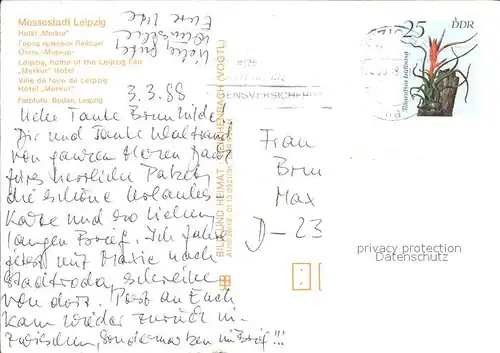 Messestadt Leipzig
Hotel „Merkur"
Leipzig, home of the Leipzig Fair
„Merkur" Hotel
Ville de foire de Leipzig
Hôtel „Merkur"
Farbfoto: Boden, Leipzig
3.3.88
Liebe Tante Brunhilde!
Dir und Tante Waltraud
von ganzem Herzen Dank
fürs herrliche Paket,
die schöne Urlaubs
Karte und so lieben
langen Brief. Ich fahre
jetzt mit Maxie nach
Stadtroda, schreibe
von dort. Post an Euch
kam wieder zurück in-
zwischen, Sondermarken im Brief!!!
Eure
BILD UND HEIMAT REICHENBACH (VOGTL)
ENSVERSICHER
25
DDR
Tillandsia bulbosa
Frau
Brun
Max
D-23
privacy protection
Datenschutz